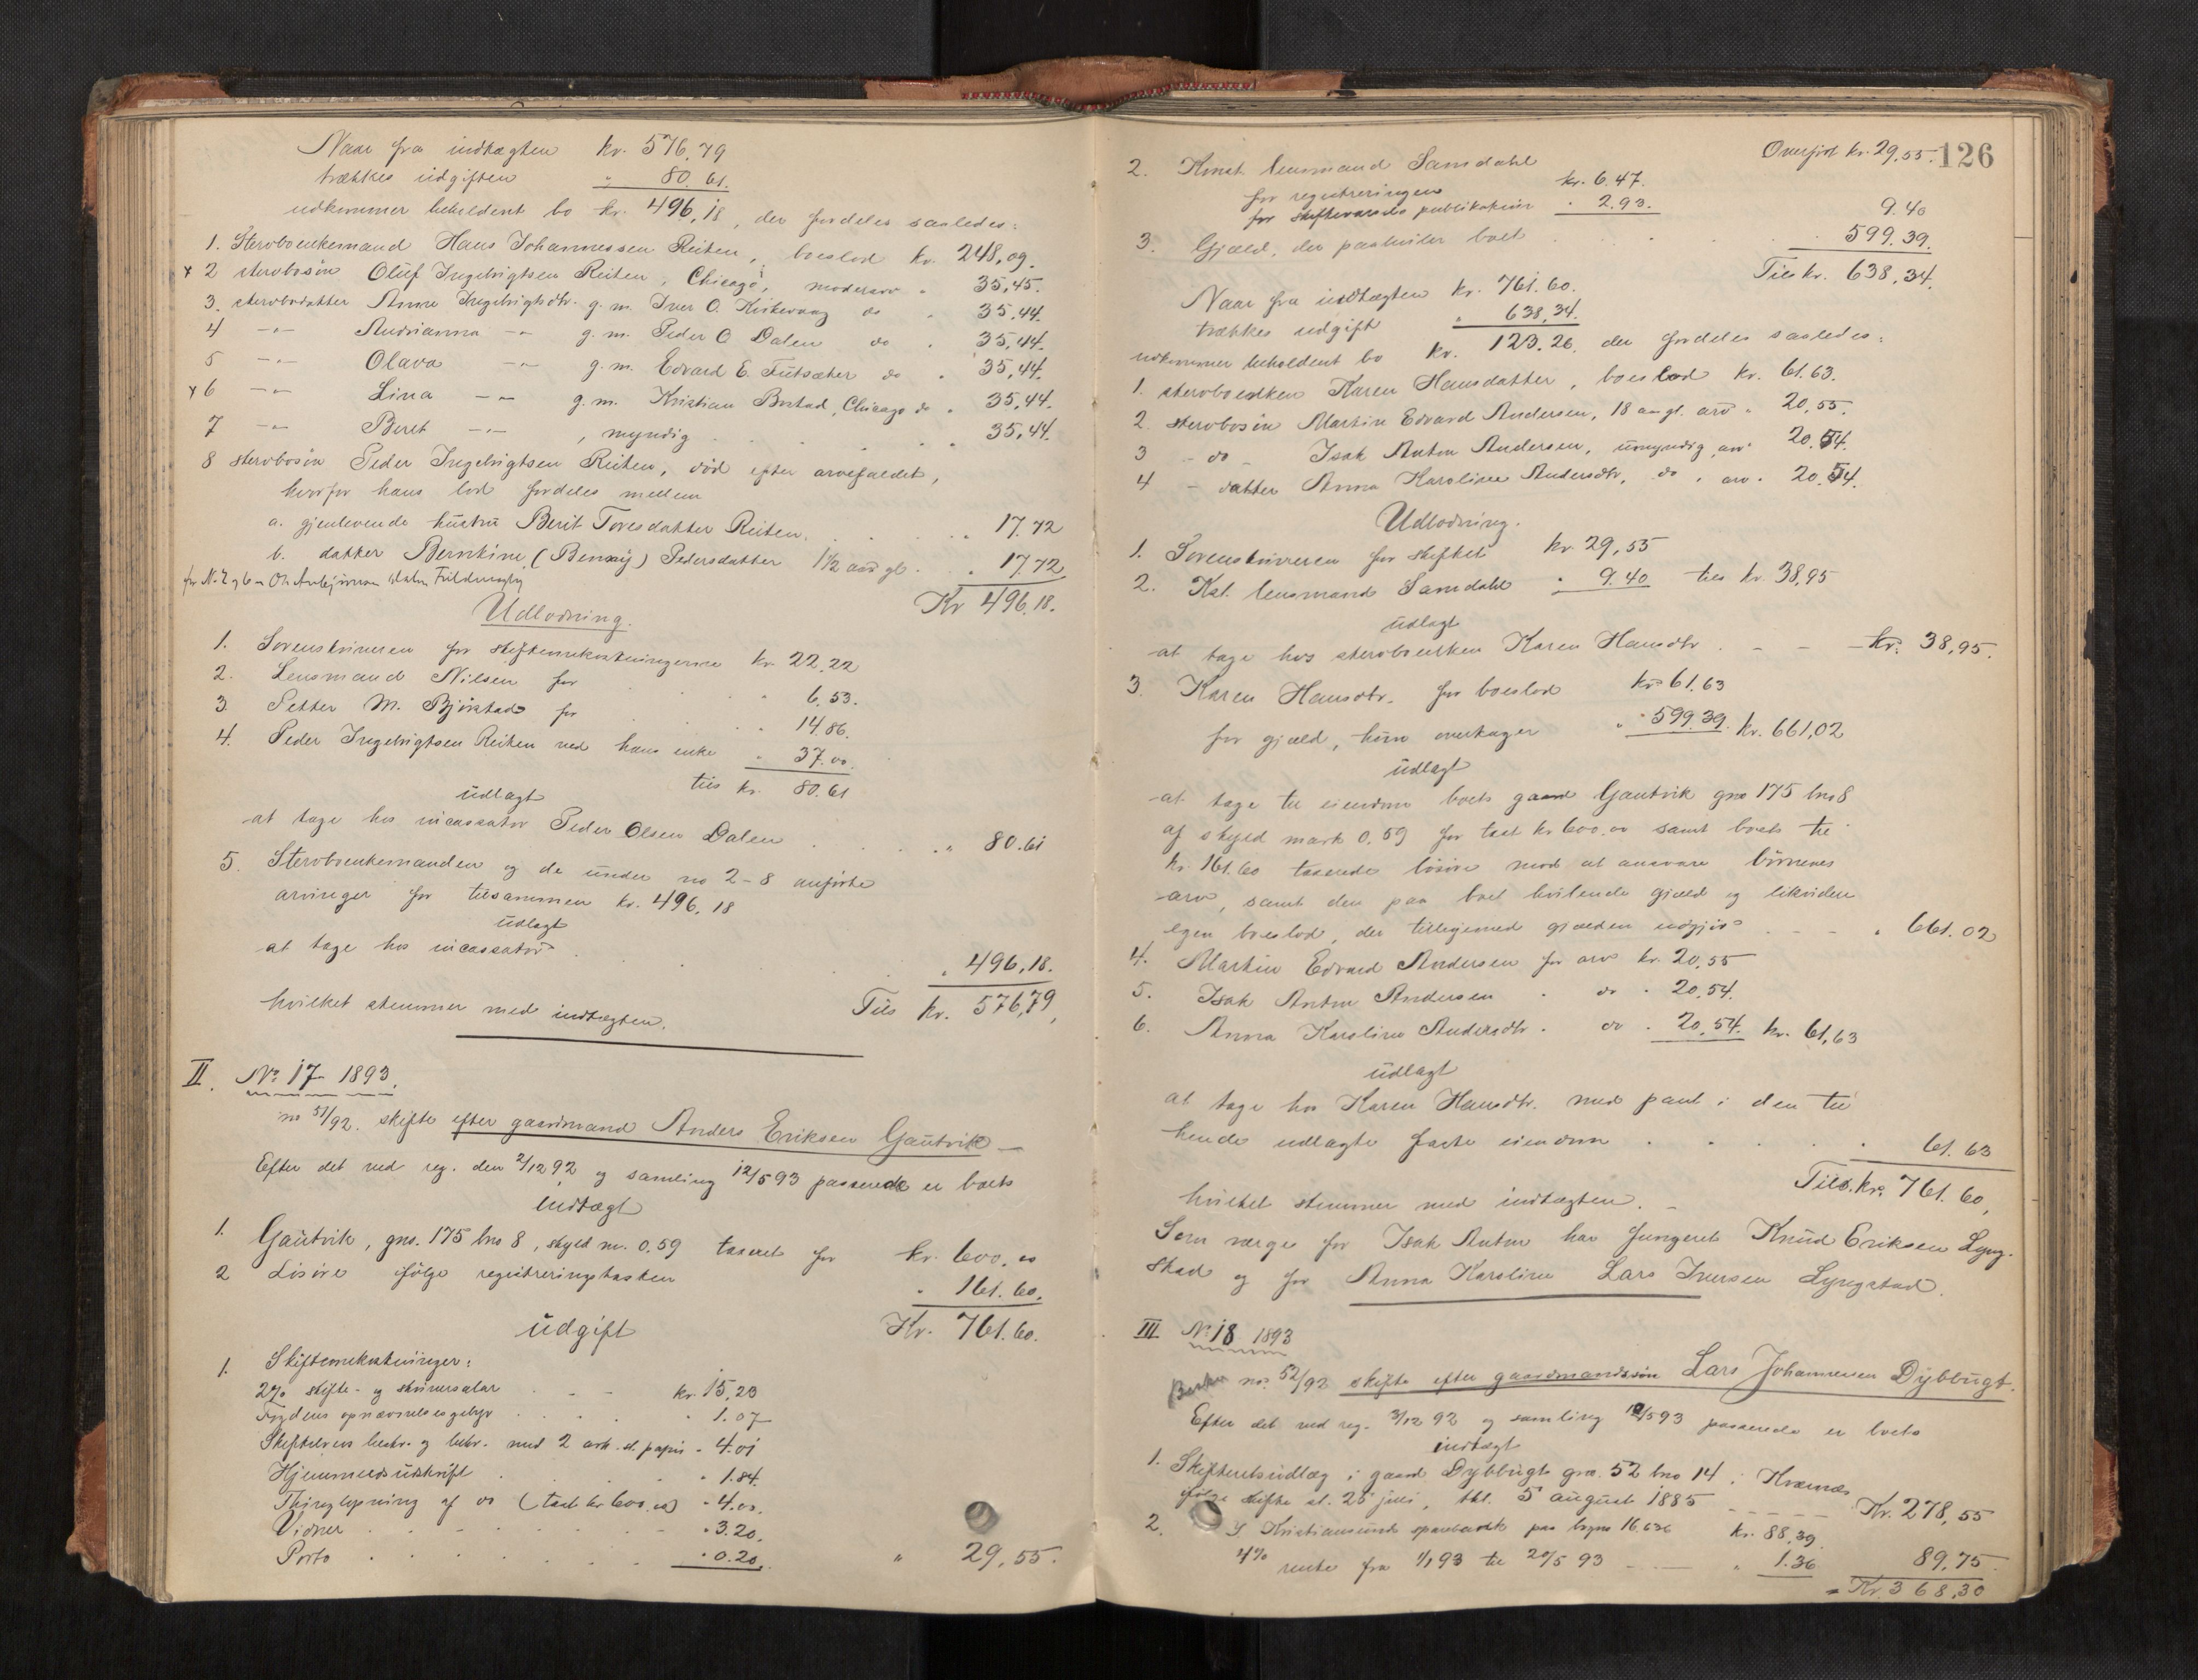 Naar fra indtægten kr. 576,79
trækkes udgiften " 80.61.
udkommer beholdent bo kr. 496,18, der fordeles saaledes:
1. Sterboenkemand Hans Johannessen Reiten, boeslod kr. 248,09.
x 2 sterbosön Oluf Ingebrigtsen Reiten, Chicago, modersarv " 35,45.
3. sterbodatter Anne Ingebrigtsdtr. g.m. Iver O. Kirkevaag do " 35.44.
4 -"- Andrianna -"- g.m. Peder O Dalen do . 35,44.
5 -"- Olava -"- g.m. Edvard E. Futsæter do " 35,44.
x 6 -"- Lina -"- g.m. Kristian Bostad, Chicago do " 35,44.
7 -"- Beret -"- , myndig . . . . " 35,44.
8 sterbosön Peder Ingebrigtsen Reiten, död efter arvefaldet,
hvorfor hans lod fordeles mellem
a. gjenlevende hustru Berit Toresdatter Reiten . . . " 17.72
b. datter Berntine, (Bennij) Pedersdatter 1½ aar gl. . " 17.72
for N. 2 og 6
Kr 496.18.
Udlodning.
1. Sorenskriveren for skifteomkostningerne kr. 22.22
2. Lensmand Nilsen for . . . " 6.53.
3. Petter M. Björstad for . . . " 14.86.
4. Peder Ingebrigtsen Reiten ved hans enke " 37.00.
tils kr. 80.61
udlagt
at tage hos incassator Peder Olsen Dalen . . . . " 80.61
5. Sterboenkemanden og de under no 2-8 anförte
arvinger for tilsammen kr. 496,18
udlagt
at tage hos incassator . . . . . " 496,18.
hvilket stemmer med indtægten. Tils kr. 576,79,
II. No. 17 1893.
no 51/92. skifte efter gaardmand Anders Eriksen Gautvik -
Efter det ved reg. den 2/12 92 og samling 12/5 93 passerede er boets
Indtægt
1. Gautvik, gno. 175 bno 8, skyld m. 0.59 taxeret for kr. 600,00
2 Lösöre ifölge registreringstaxten " 161.60.
Kr. 761.60.
udgift
1. Skifteomkostninger:
2% skifte- og skriversalær . - - kr. 15,23
Fogdens opnævnelsesgebyr . . . . " 1.07
Skiftebrevs beskr. og bekr. med 2 ark st. papir " 4.01
Hjemmelsudskrift . . . . " 1.84.
Thinglysning af do (taxt kr 600.00) " 4.00.
Vidner . . . . . " 3.20.
Porto . . . . . " 0.20, " 29,55.
126
Overfört kr. 29,55.
2. Konst. lensmand Samdahl
for registreringen kr. 6.47.
for skiftevarsels publikation " 2.93. 9.40
3. Gjæld, der paahviler boet . . . . . 599.39.
Tils kr. 638,34.
Naar fra indtægten kr. 761.60.
trækkes udgift " 638,34.
udkommer beholdent bo kr. 123.26, der fordeles saaledes:
1. sterboenken Karen Hansdatter, boeslod kr. 61.63.
2. sterbosön Martin Edvard Andersen, 18 aar gl. arv " 20,55.
3 - do - Isak Anton Andersen, umyndig, arv " 20.54.
4 - datter Anna Karoline Andersdtr, do, arv . 20.54.
Udlodning.
1. Sorenskriveren for skiftet kr. 29,55
2. Kst. lensmand Samdahl " 9.40 tils kr. 38,95
udlagt
at tage hos sterboenken Karen Hansdtr . - - - kr. 38,95.
3. Karen Hansdtr. for boeslod kr. 61.63
for gjæld, hun overtager " 599.39. kr. 661,02
udlagt
at tage til eiendom boets gaard Gautvik gno 175 bno 8
af skyld mark 0.59 for taxt kr 600.00 samt boets til
kr. 161.60 taxerede lösöre mod at ansvare börnenes
arv, samt den paa boet hvilende gjæld og likvidere
egen boeslod, der tilligemed gjælden udgjör - - - " 661.02
4. Martin Edvard Andersen for arv kr. 20,55
5. Isak Anton Andersen . do . 20.54.
6. Anna Karoline Andersdtr. do . 20,54. kr. 61,63
udlagt
at tage hos Karen Hansdtr. med pant i den til
hende udlagte faste eiendom . . . . . 61.63
Tils. kr. 761.60,
hvilket stemmer med indtægten. -
Som værge for Isak Anton har fungeret Knud Eriksen Lyng-
stad og for Anna Karoline Lars Iversen Lyngstad.
III No. 18 1893
no. 52/92 skifte efter gaardmandssön Lars Johannesen Dybbugt.
Efter det ved reg. 3/12 92 og samling 12/5 93 passerede er boets
indtægt
1. Skifteretsudlæg i gaard Dybbugt gno. 52 bno 14 i Kværnæs
ifölge skifte sl. 25 juli, thl. 5 august 1885 - - - - Kr. 278,55
2. I Kristiansunds sparebank paa bogno 16,636 kr. 88,39.
4% rente fra 1/1 93 til 20/5 93 - - " 1.36 89,75
Kr. 368,30